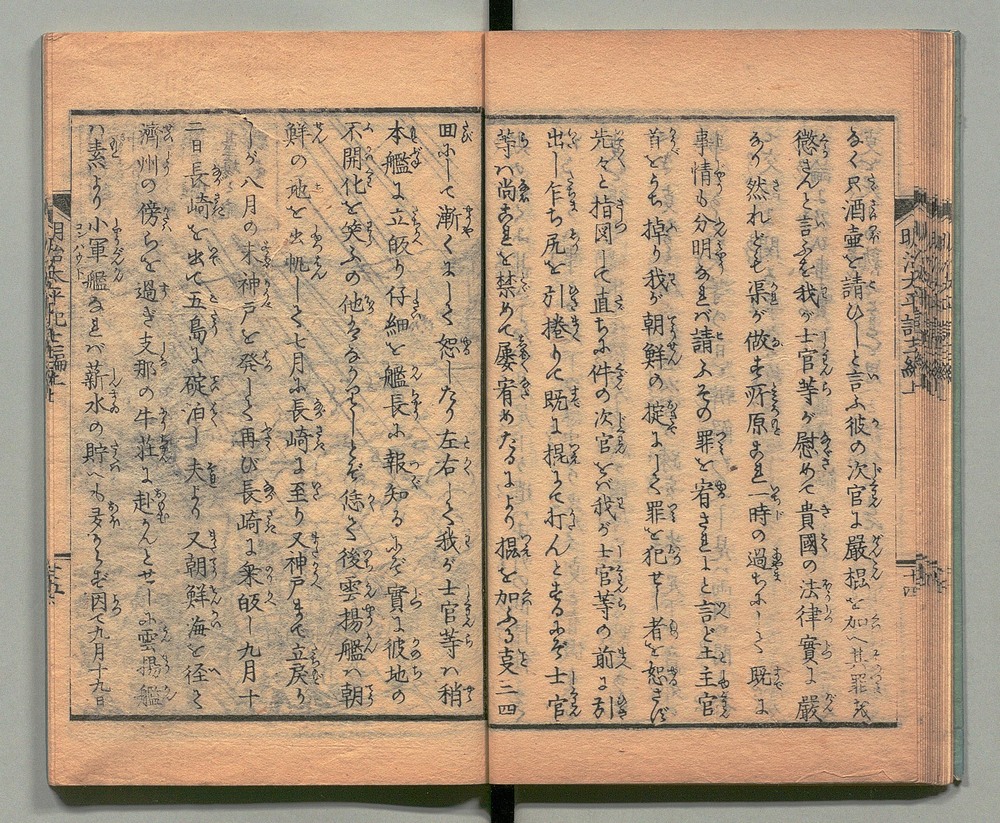 なく只酒壷を請ひしと言ふ彼の次官に嚴棍を加へ其罪を
懲さんと言ふを我が士官等が慰めて貴國の法律實に嚴
なり然れども渠が做す所原これ一時の過ちにして既に
事情も分明なれバ請ふその罪を宥されよと言ど土主官
首をうち掉り我が朝鮮の掟にして罪を犯せし者を恕さバ
先々と指図して直ちに件の次官をバ我が士官等の前に引
出し乍ち尻を引捲りて既に棍にて打んとするにぞ士官
等ハ尚これを禁めて屡宥めたるにより棍を加ふる支二四
田にして漸くにして恕したり左右して我が士官等ハ稍
本艦に立皈り仔細を艦長に報知るにぞ實に彼地の
不開化を笑ふの他はなかりしとぞ恁て後雲揚艦ハ朝
鮮の地を出帆して七月に長崎に至り又神戸まで立戻り
しが八月の末神戸を発して再び長崎に来皈し九月十
二日長崎を出て五島に碇泊し夫より又朝鮮海を径て
濟州の傍らを過ぎ支那の牛荘に赴かんとせしに雲揚艦
ハ素より小軍艦なれバ薪水の貯へも多からず因て九月十九日
明治太平記十二編上
十四